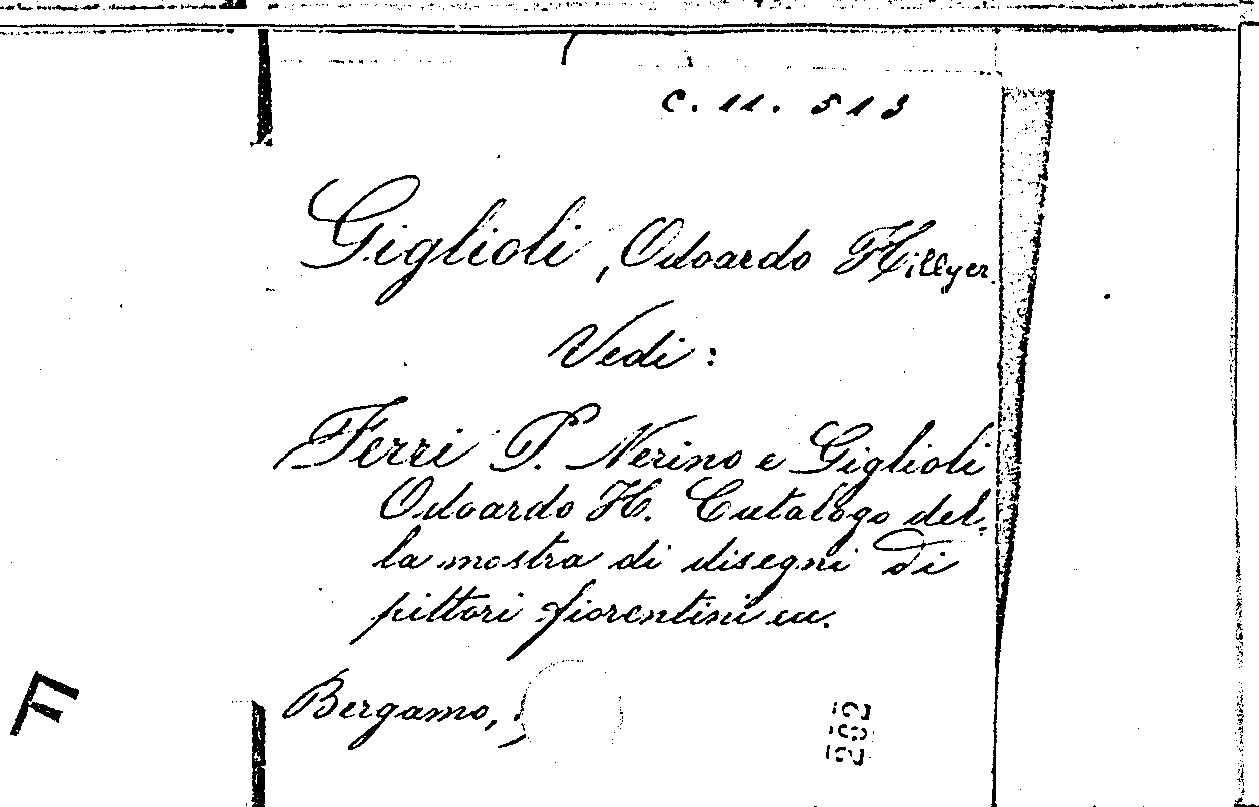 C. 11. 513
Giglioli, Odoardo Hillyer
Vedi:
Ferri P. Nerino e Giglioli
Odoardo H. Catalogo del-
la mostra di disegni di
pittori fiorentini ecc.
Bergamo,
F